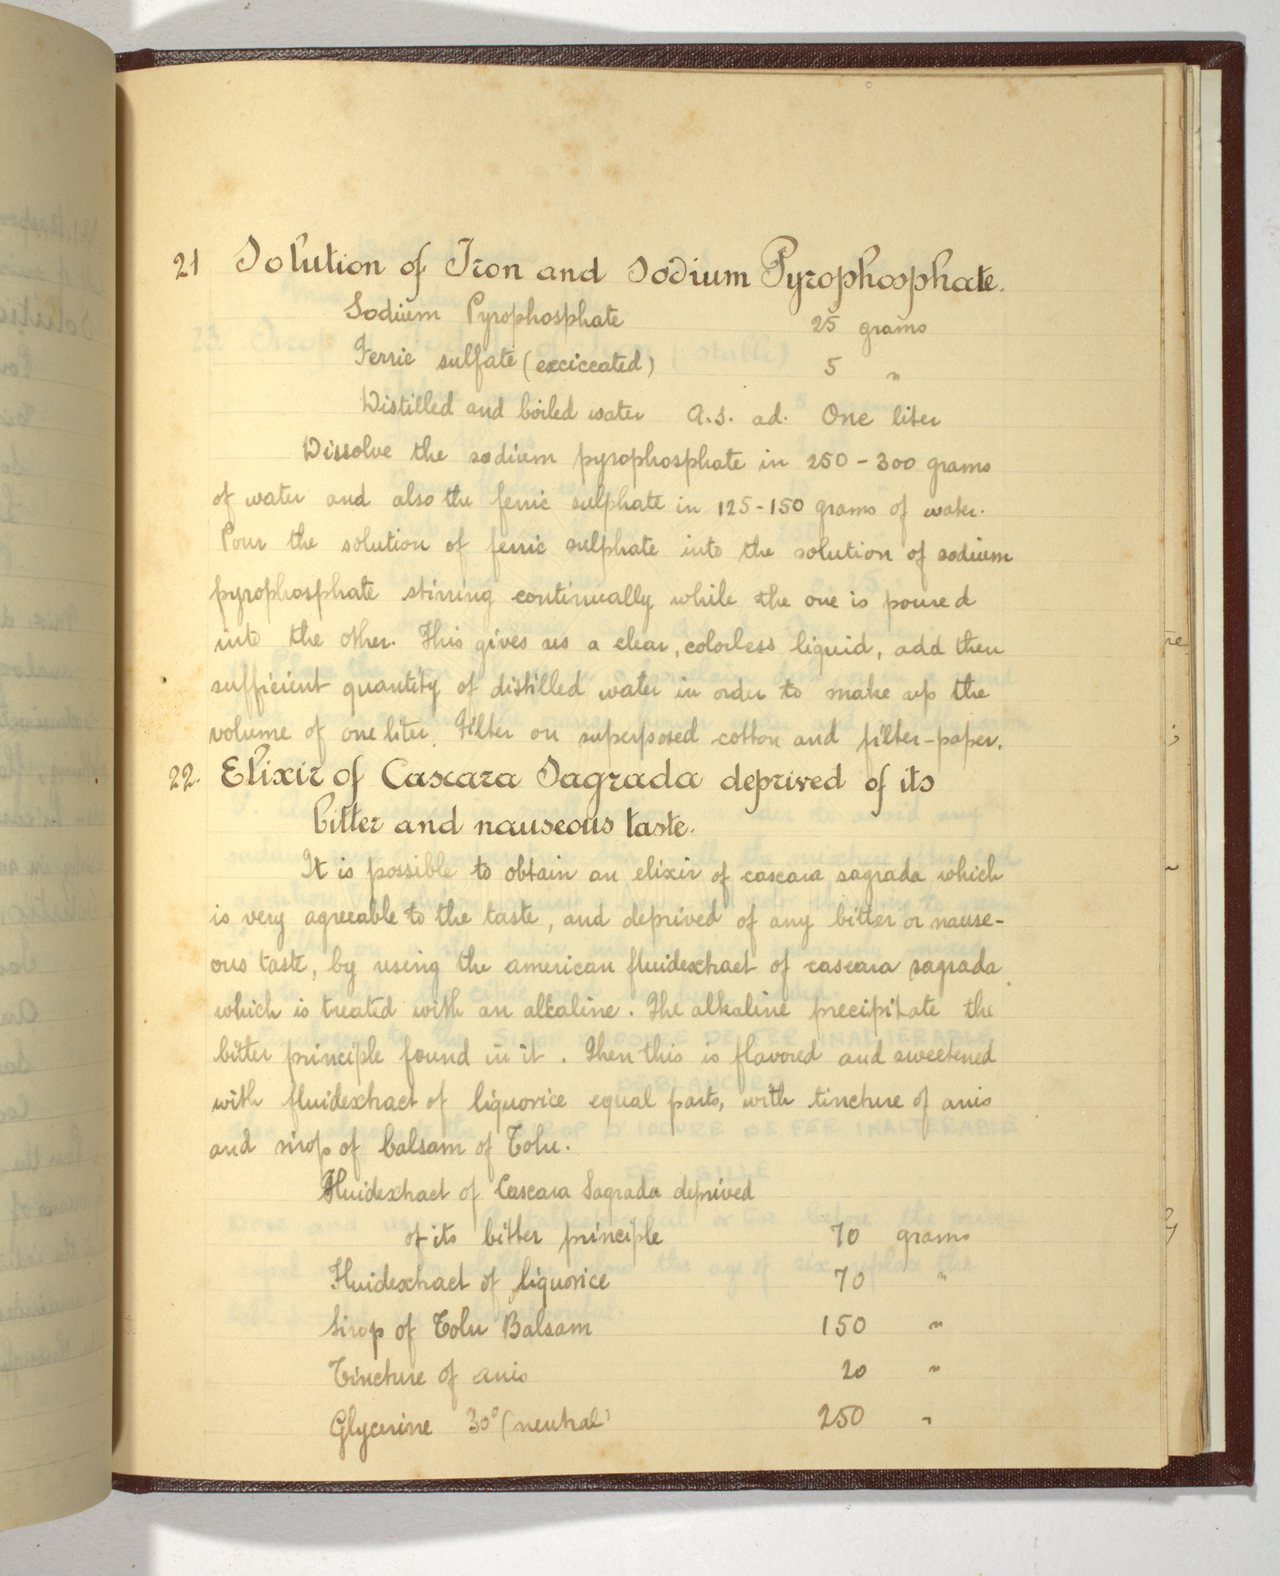 21 Solution of Iron and Sodium Pyrophosphate.
Sodium Pyrophosphate 25 grams
Ferric sulfate (exciccated) 5 "
Distilled and boiled water Q.S. ad. One liter
Dissolve the sodium pyrophosphate in 250-300 grams
of water and also the ferric sulphate in 125-150 grams of water.
Pour the solution of ferric sulphate into the solution of sodium
pyrophosphate stirring continually while the one is poured
into the other. This gives us a clear, colorless liquid, add then
sufficient quantity of distilled water in order to make up the
volume of one liter. Filter on superposed cotton and filter-paper.
22. Elixir of Cascara Sagrada deprived of its
bitter and nauseous taste.
It is possible to obtain an elixir of cascara sagrada which
is very agreeable to the taste, and deprived of any bitter or nause-
ous taste, by using the american fluidextract of cascara sagrada
which is treated with an alkaline. The alkaline precipitate the
bitter principle found in it. Then this is flavored and sweetened
with fluidextract of liquorice equal parts, with tincture of anis
and sirop of balsam of Tolu.
Fluidextract of Cascara Sagrada deprived
of its bitter principle 70 grams
Fluidextract of liquorice 70 "
Sirop of Tolu Balsam 150 "
Tincture of anis 20 "
Glycerine 30° (neutral) 250 "